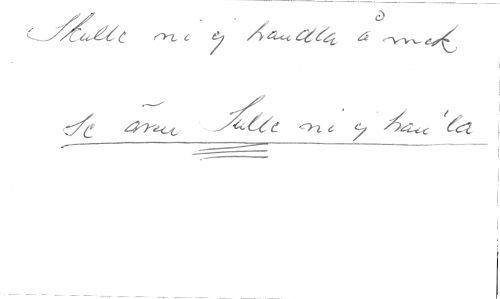 Skulle ni ej handla å mek
se även Sulle ni ej han'la